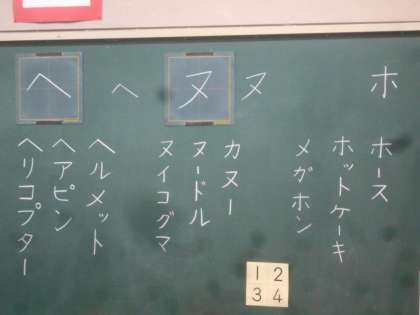 ホ
ホース
ホットケーキ
メガホン
ヌ
ヌ
カヌー
ヌードル
ヌイコグマ
ヘ
ヘ
ヘルメット
ヘアピン
ヘリコプター
1 2
3 4